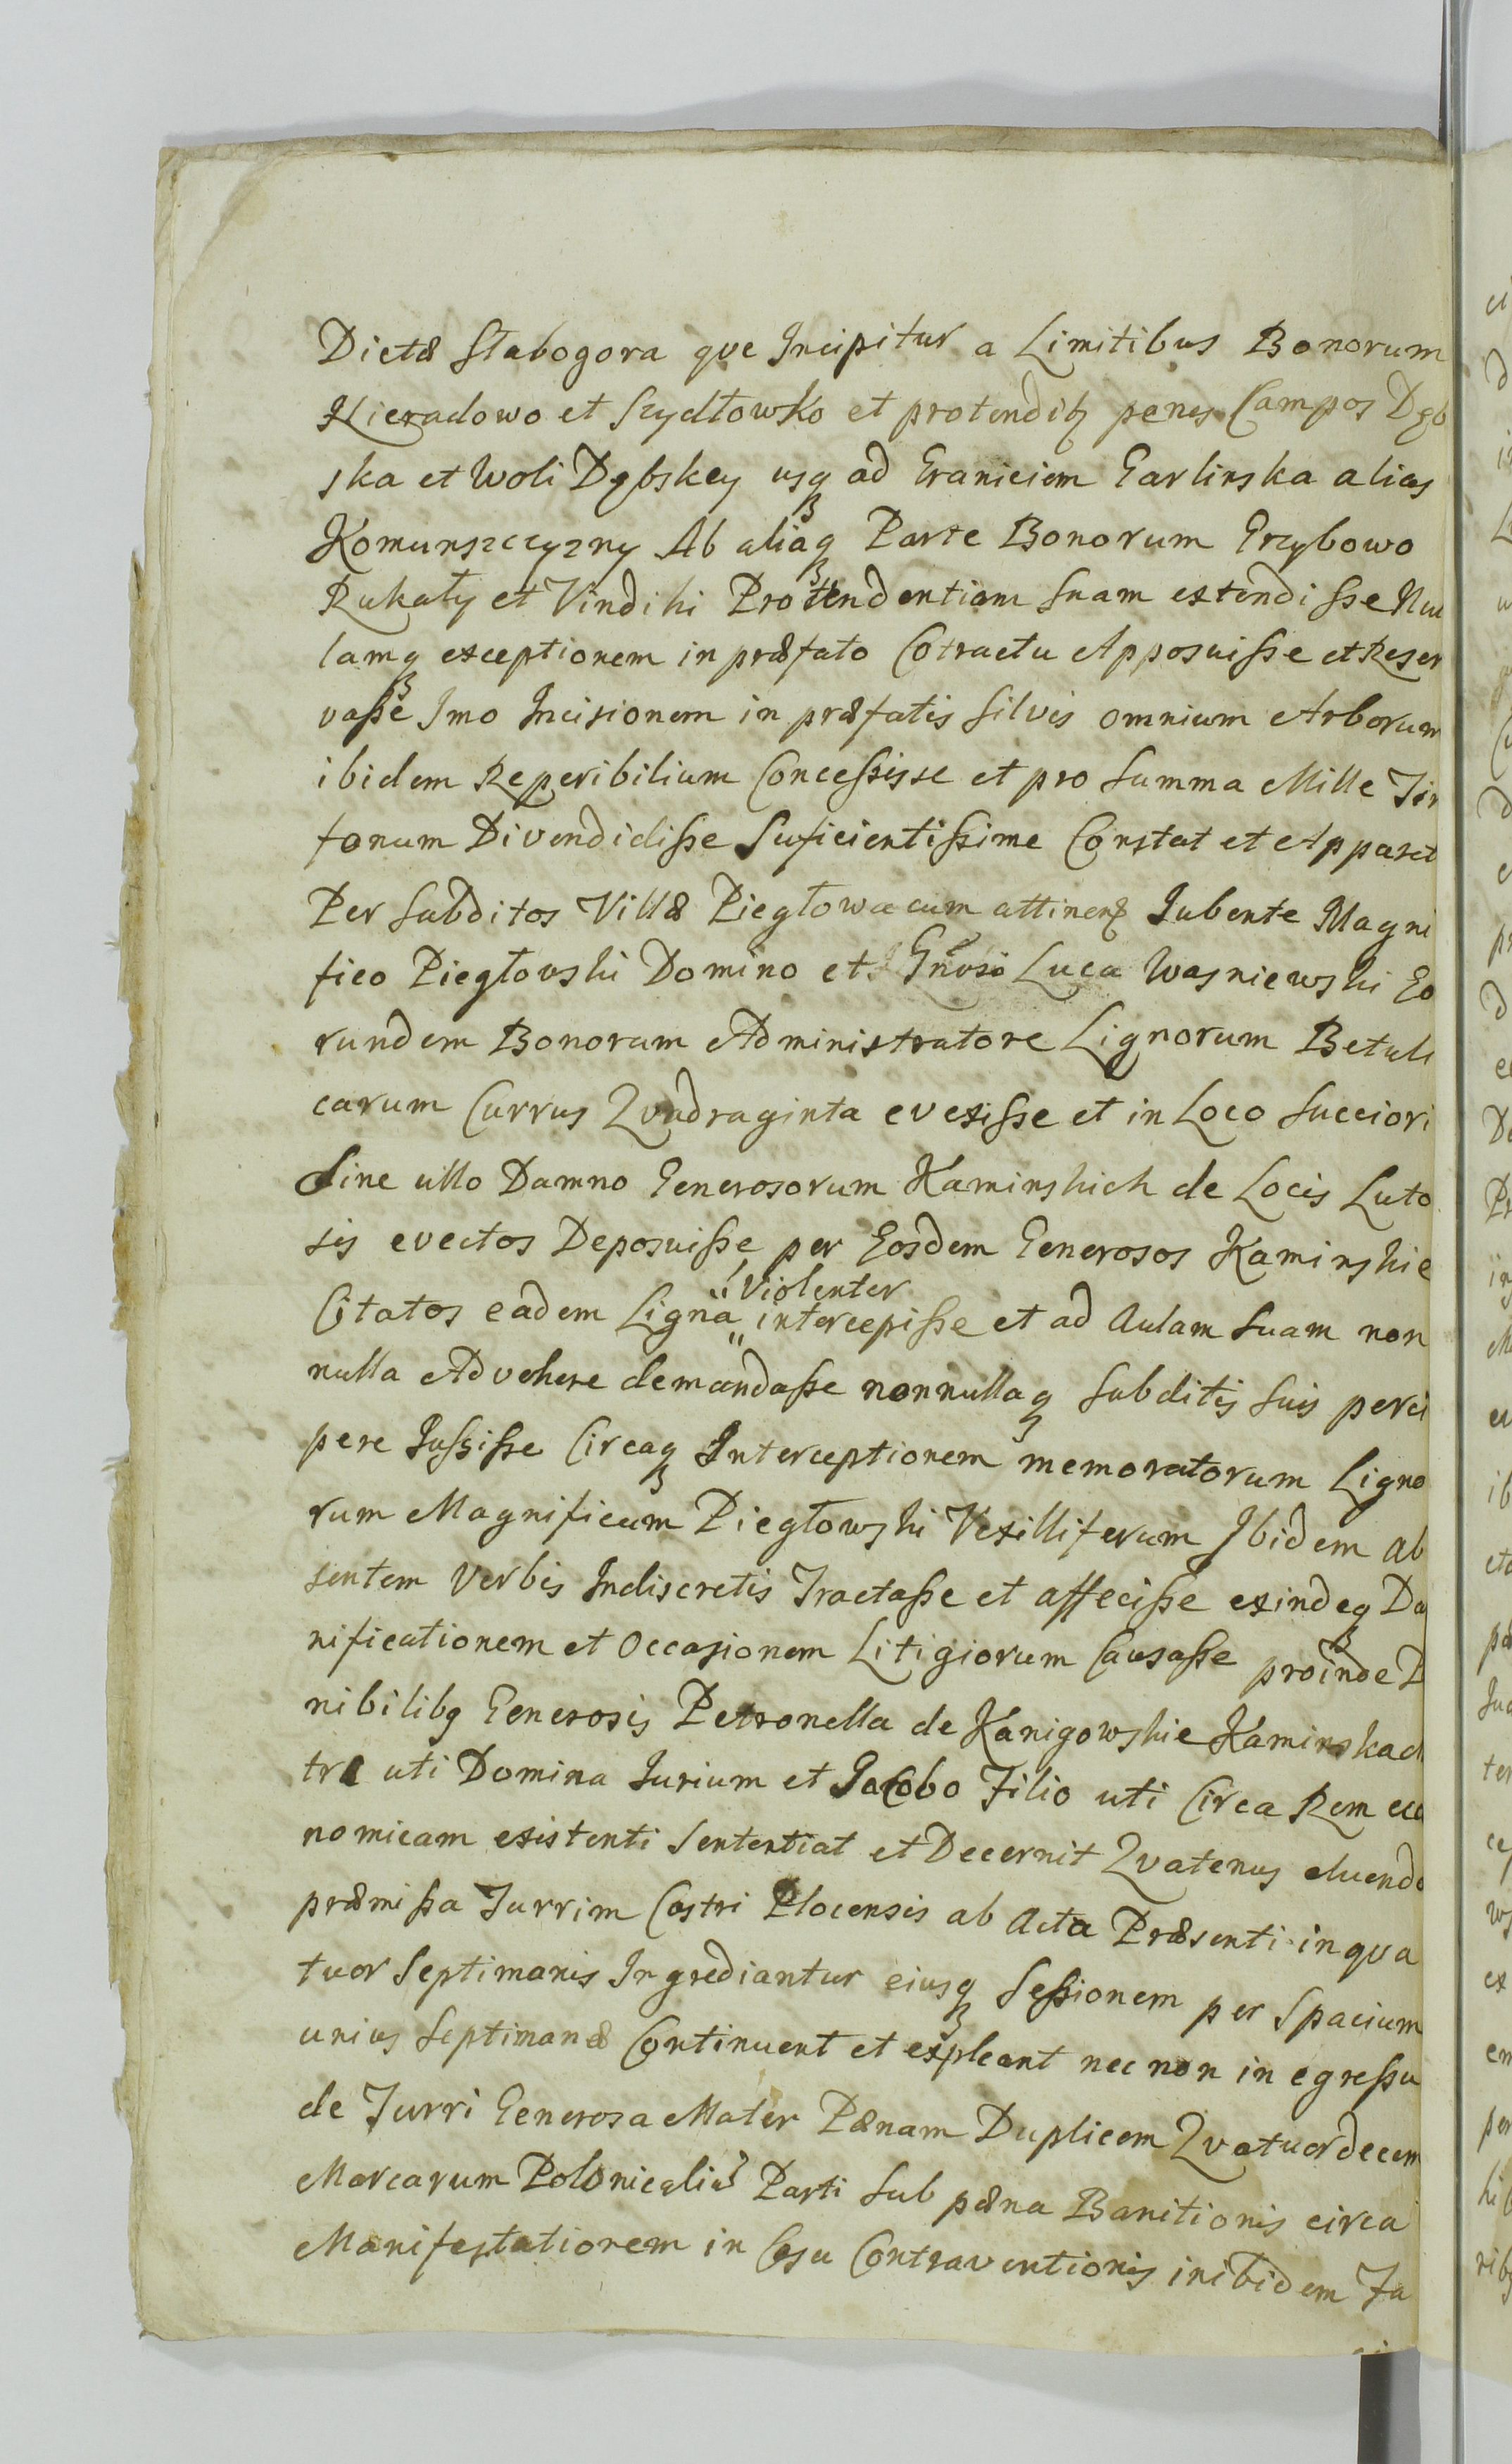 Dictæ Słabogora que Incipitur a Limitibus Bonorum
Nieradowo et Szydłowko et protenditq penes Campos Dęb
ska et Woli Dębskey usq ad Graniciem Garlinska alias
Komunszczyzny Ab aliaq Parte Bonorum Grzybowo
Rukały et Vindiki Protendentiam Suam extendisse Nul
lamq exceptionem in præfato Cotractu Apposuisse et Reser
vasse Imo Incisionem in præfatis Silvis omnium Arborum
ibidem Reperibilium Concessisse et pro Summa Mille Tin
fonum Divendidisse Suficientissime Constat et Apparet
Per Subditos Villæ Piegłowa cum attinenę Jubente Magni
fico Piegłovski Domino et Gnvso Luca Wasniewski Eo
rundem Bonorum Administratore Lignorum Betuli
carum Currus Qvadraginta evexisse et in Loco Succiori
Sine ullo Damno Generosorum Kaminskich de Locis Luto
sis evectos Deposuisse per Eosdem Generosos Kaminskie
Violenter
Citatos eadem Ligna intercepisse et ad Aulam Suam non
nulla Advehere demandasse nonnullaq Subditis Suis perci
pere Jussisse Circaq Interceptionem memoratorum Ligno
rum Magnificum Piegłowski Vexilliferum Ibidem Ab
sentem Verbis Indiscretis Tractasse et affecisse exindeq Da
nificationem et Occasionem Litigiorum Causasse proinde
nibilibq Generosis Petronella de Kanigowskie Kaminska
tre uti Domina Jurium et Jacobo Filio uti Circa Rem eco
nomicam existenti Sententiat et Decernit Qvatenus eluendo
præmissa Turrim Castri Plocensis ab Acta Præsenti in qva
tuor Septimanis Ingrediantur eiusq Sessionem per Spacium
unius Septimanæ Continuent et expleant nec non in egressu
de Turri Generosa Mater Pænam Duplicem Qvatuordecem
Marcarum Polonicaliu Parti Sub pæna Banitionis circa
Manifestationem in Casu Contraventionis inibidem Fa